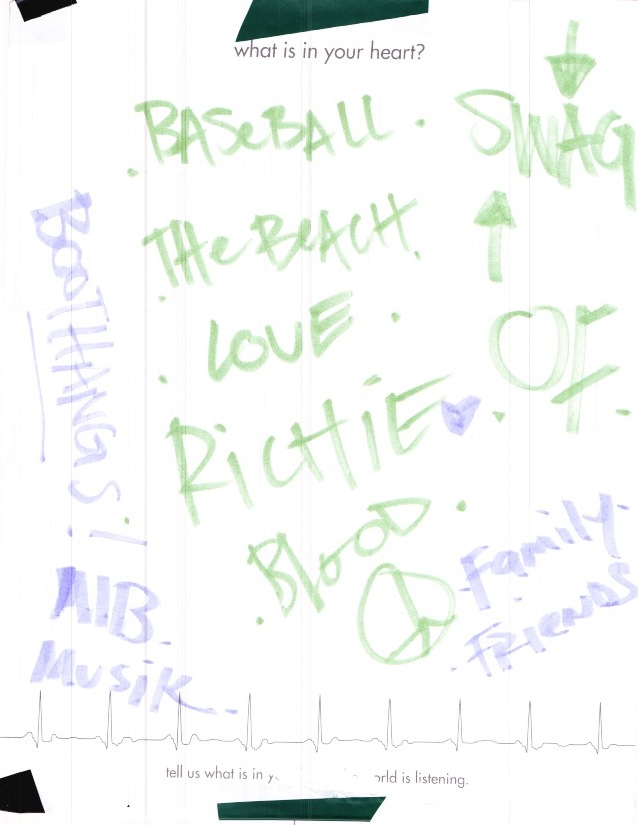 what is in your heart?
BASeBALL.
SWAG
THe BEACH.
BOOTHANGS!
LOVE
OF
RiCHiE
BlooD
Family.
FRIENDS
MIB.
Musik
tell us what is in y
orld is listening.